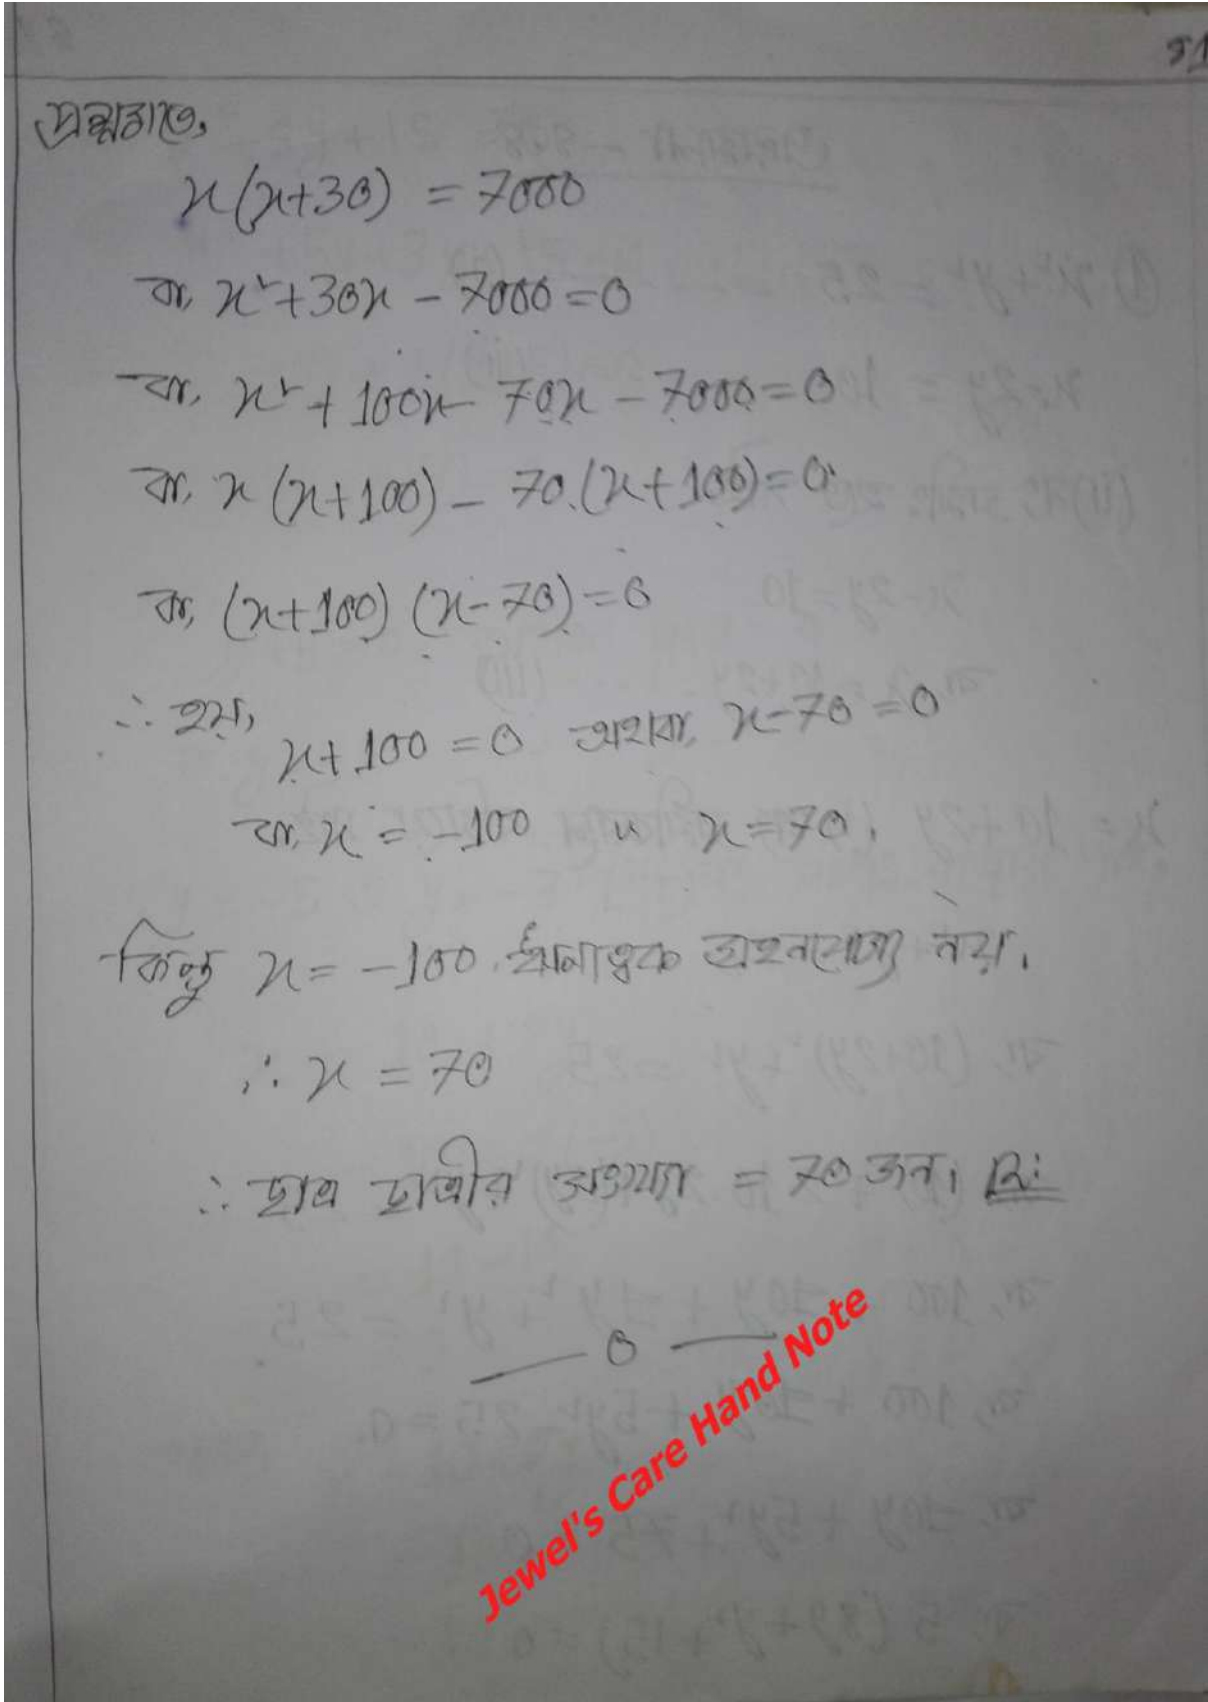 প্রশ্নমতে,
x(x+30) = 7000
বা, x²+30x - 7000=0
বা, x² + 100x - 70x - 7000=0
বা, x (x+100) - 70.(x+100)=0
বা, (x+100) (x-70)=0
∴ হয়, x+100 = 0 অথবা, x-70 = 0
বা, x = -100 " x=70.
কিন্তু x = -100 ঋণাত্বক গ্রহনযোগ্য নয়.
∴ x = 70
∴ ছাত্র ছাত্রীর সংখ্যা = 70 জন।
— 0 —
Jewel's Care Hand Note